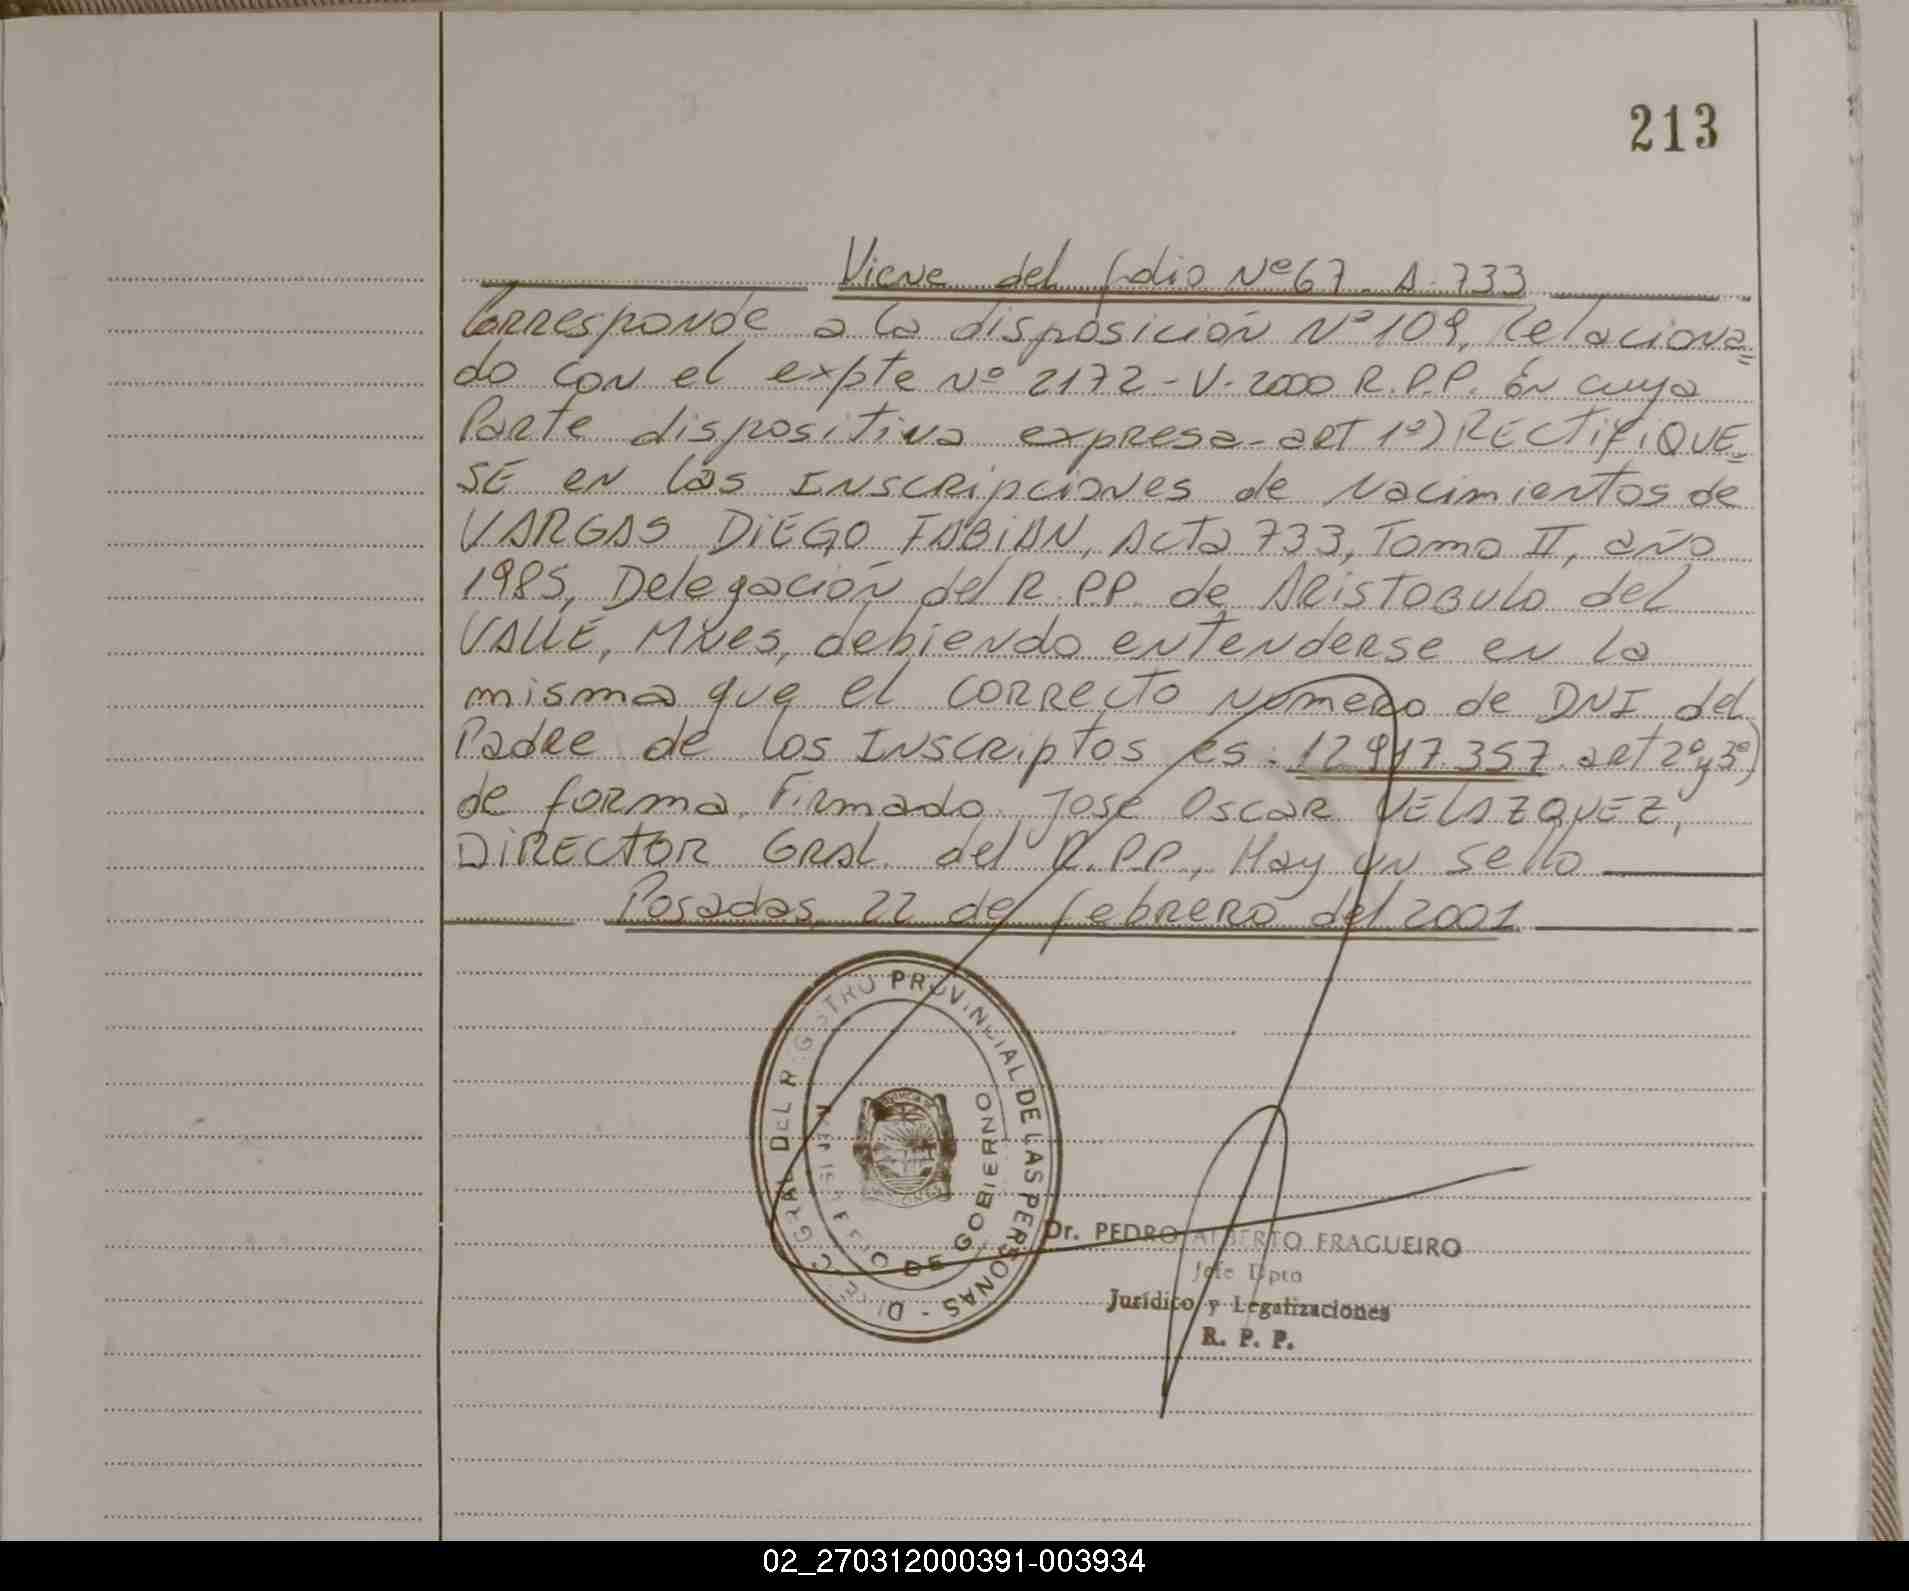 213
Viene del folio Nº 67. A. 733
Corresponde a la disposición Nº 109, relaciona=
do con el expte Nº 2172-V-2000 R.P.P. En cuya
Parte dispositiva expresa-art 1º) RECTIFIQUE=
SE en las INSCRIPCIONES de Nacimientos de
VARGAS DIEGO FABIAN, Acta 733, Tomo II, año
1985, Delegación del R.PP. de ARISTOBULO del
VALLE, Mnes, debiendo entenderse en la
misma que el CORRECTO Número de DNI del
Padre de los INSCRIPTOS es: 12.917.357. art 2º y 3º)
de forma. Firmado. José Oscar VELAZQUEZ,
DIRECTOR GRAL. del R.P.P., Hay un sello
Posadas, 22 de febrero del 2001
DEL REGISTRO PROVINCIAL DE LAS PERSONAS -
DE GOBIERNO
Dr. PEDRO ALBERTO FRAGUEIRO
Jefe Dpto
Jurídico y Legalizaciones
R. P. P.
02_270312000391-003934